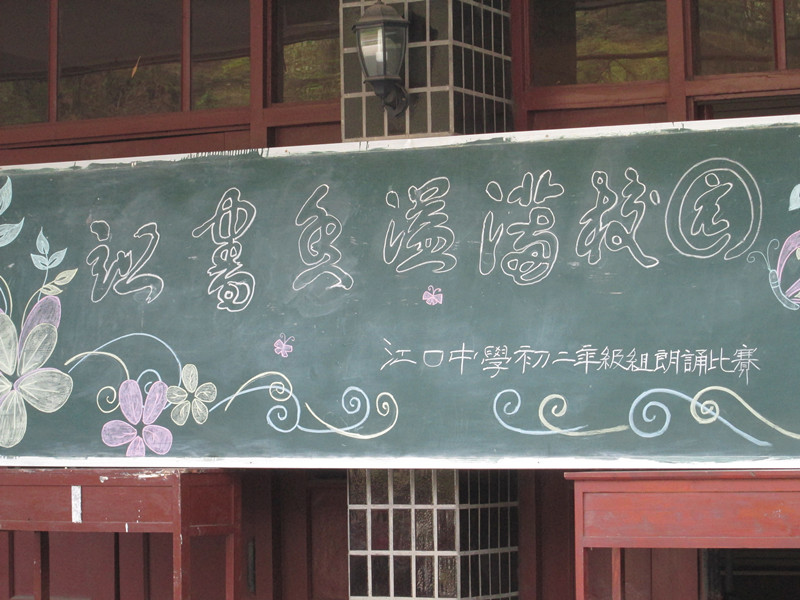 让書香溢滿校园
江口中學初二年級組朗誦比賽